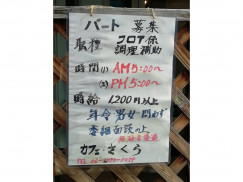 パート 募集
職種 フロア係
調理補助
時間(1) AM5:00〜
(2) PM5:00〜
時給 1,200円以上
年令男女問わず
委細面談の上
経験者優遇
カフェ・さくら